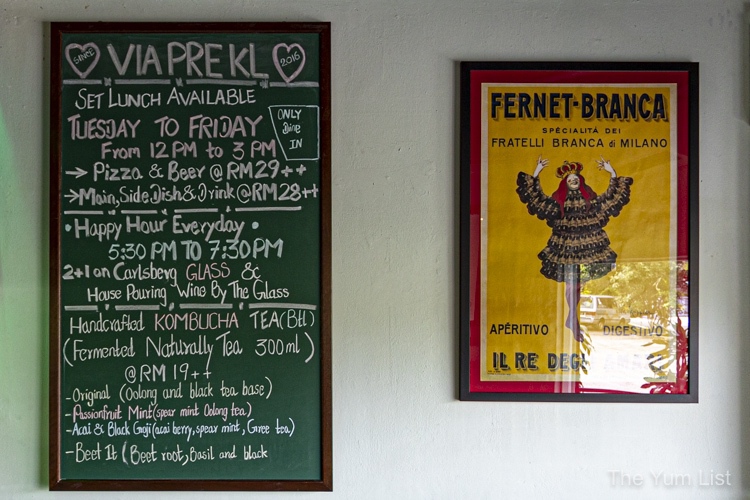 SINCE
VIA PRE KL
2016
SET LUNCH AVAILABLE
TUESDAY TO FRIDAY
From 12 PM to 3 PM
ONLY
Dine
IN
→ Pizza & Beer @ RM 29++
→ Main, Side Dish & Drink @ RM 28++
• Happy Hour Everyday •
5:30 PM TO 7:30 PM
2+1 on Carlsberg GLASS &
House Pouring Wine By The Glass
Handcrafted KOMBUCHA TEA (Btl)
(Fermented Naturally Tea 300ml)
@ RM 19++
- Original (Oolong and black tea base)
- Passionfruit Mint (spear mint Oolong tea)
- Acai & Black Goji (acai berry, spear mint, Gree tea)
- Beet It (Beet root, Basil and black
FERNET-BRANCA
SPÉCIALITÀ DEI
FRATELLI BRANCA di MILANO
APÉRITIVO DIGESTIVO
IL RE DEGLI AMARI
The Yum List